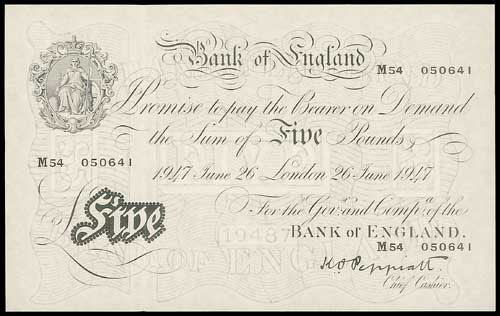 Bank of England
M54 050641
I Promise to pay the Bearer on Demand
the Sum of Five Pounds
M54 050641
1947 June 26 London 26 June 1947
For the Govr. and Compa. of the
BANK OF ENGLAND.
£ Five
M54 050641
K O Peppiatt.
Chief Cashier.